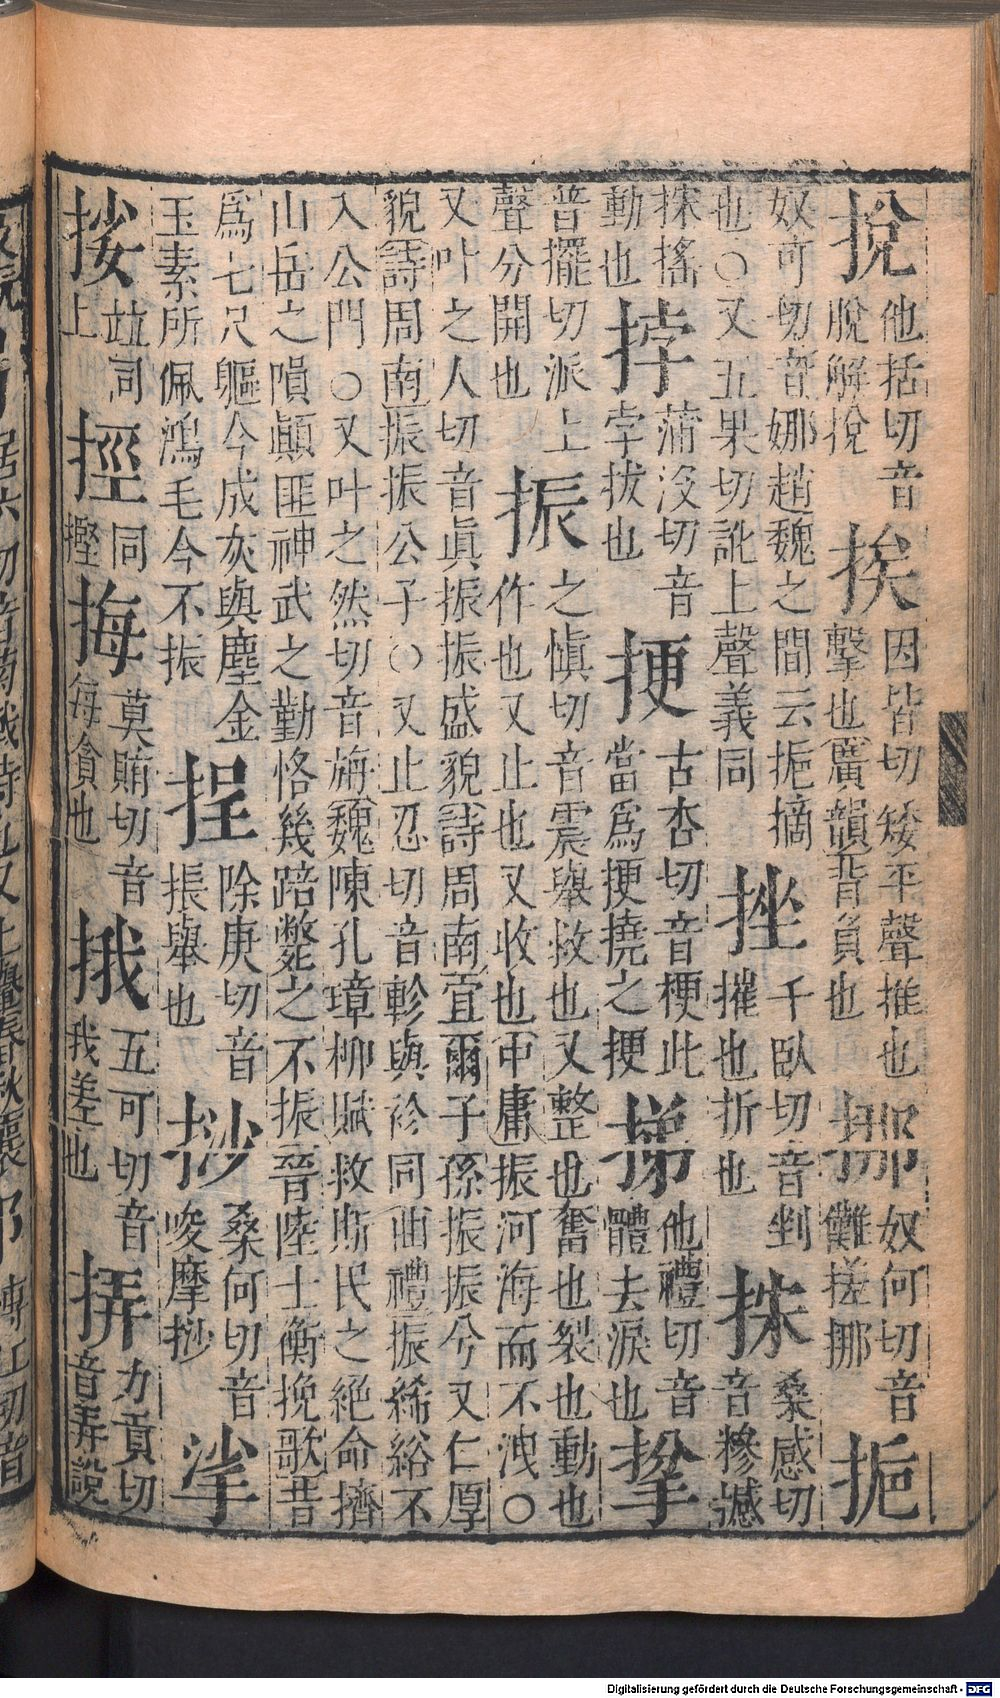 挩他括切音脫解挩
挨因皆切矮平聲推也擊也廣韻背負也
挪奴何切音儺搓挪
扼奴可切音娜趙魏之間云扼摘也○又五果切訛上聲義同
挫千臥切音剉摧也折也
桑感切音糝撼搖動也
挬蒲沒切音孛拔也
挭古杏切音梗此當爲挭撓之挭
挮他禮切音體去淚也
普擺切派上聲分開也
振之愼切音震舉救也又整也奮也裂也動也
作也又止也又收也中庸振河海而不洩○
又叶之人切音眞振振盛貌詩周南宜爾子孫振振兮又仁厚
貌詩周南振振公子○又止忍切音軫與袗同曲禮振絺綌不
入公門○又叶之然切音旃魏陳孔璋柳賦救斯民之絕命擠
山岳之隕顚匪神武之勤恪幾踣斃之不振晉陸士衡挽歌昔
爲七尺軀今成灰與塵金
玉素所佩鴻毛今不振
挰除庚切音振舉也
挱桑何切音唆摩挱
挲
挼竝同上
挳同摼
挴莫賄切音每貪也
五可切音我差也
挵力貢切音弄說
Digitalisierung gefördert durch die Deutsche Forschungsgemeinschaft - DFG